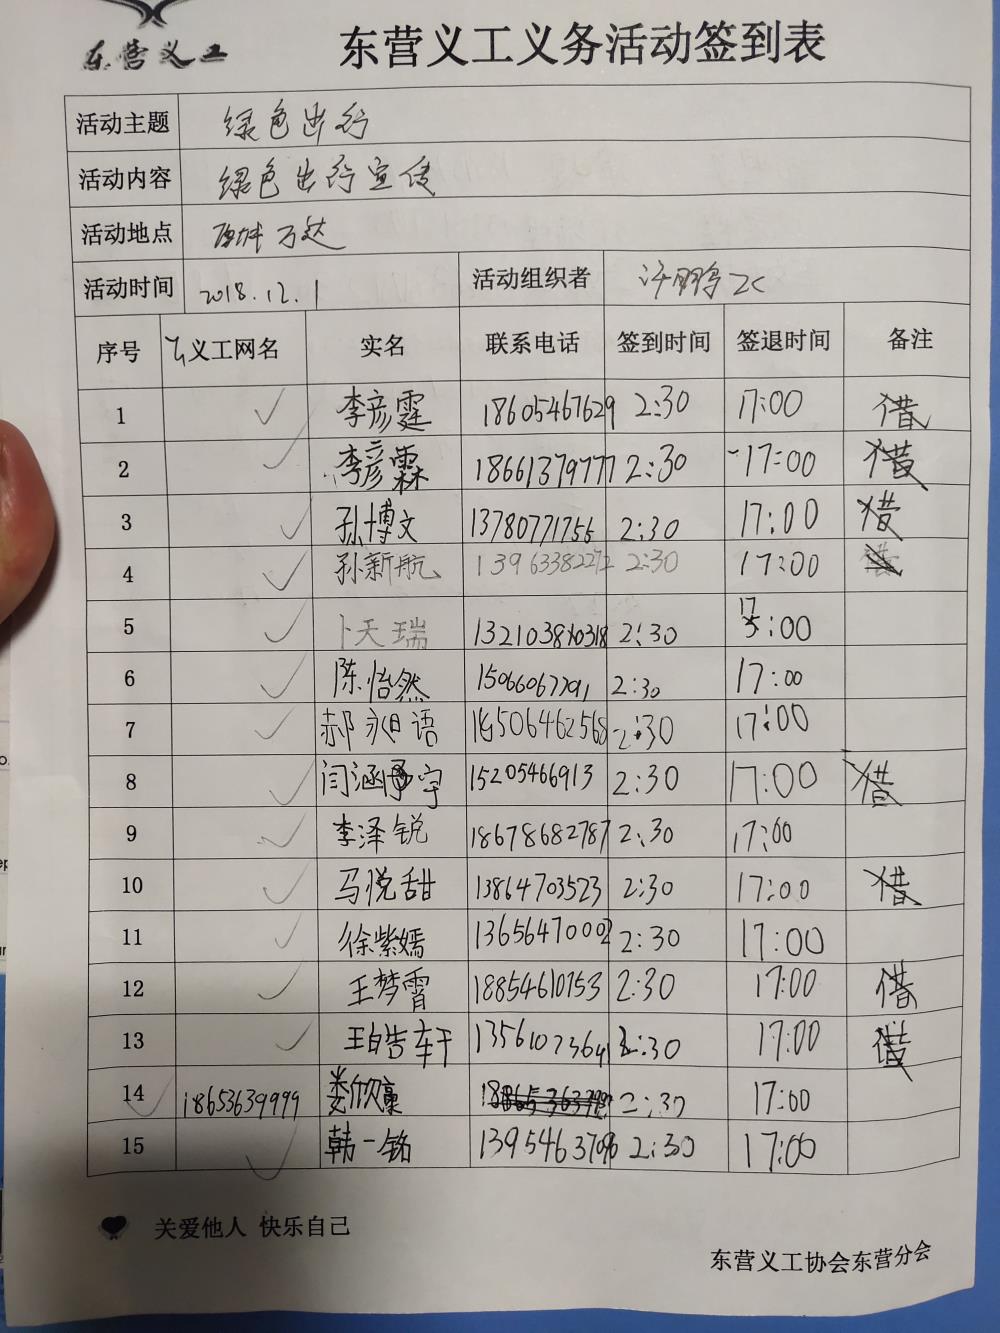 东营义工
东营义工义务活动签到表
活动主题 绿色出行
活动内容 绿色出行宣传
活动地点 西城万达
活动时间 2018.12.1 活动组织者 许鹏
序号 义工网名 实名 联系电话 签到时间 签退时间 备注
1 ✓ 李彦霆 18605467629 2:30 17:00 借
2 ✓ 李彦霖 18661379777 2:30 17:00 借
3 ✓ 孙博文 13780771756 2:30 17:00 借
4 ✓ 孙新航 13963382272 2:30 17:00 借
5 ✓ 卜天瑞 2:30 17:00
6 ✓ 陈怡然 2:30 17:00
7 ✓ 郝 语 2:30 17:00
8 ✓ 闫涵宇 15205466913 2:30 17:00 借
9 ✓ 李泽锐 18678682787 2:30 17:00
10 ✓ 马悦甜 13864703523 2:30 17:00 借
11 ✓ 徐紫嫣 13656470002 2:30 17:00
12 ✓ 王梦霄 18854610753 2:30 17:00 借
13 ✓ 王皓轩 13561073641 2:30 17:00 借
14 ✓ 18653639999 娄欣 2:30 17:00
15 ✓ 韩一铭 2:30 17:00
关爱他人 快乐自己
东营义工协会东营分会